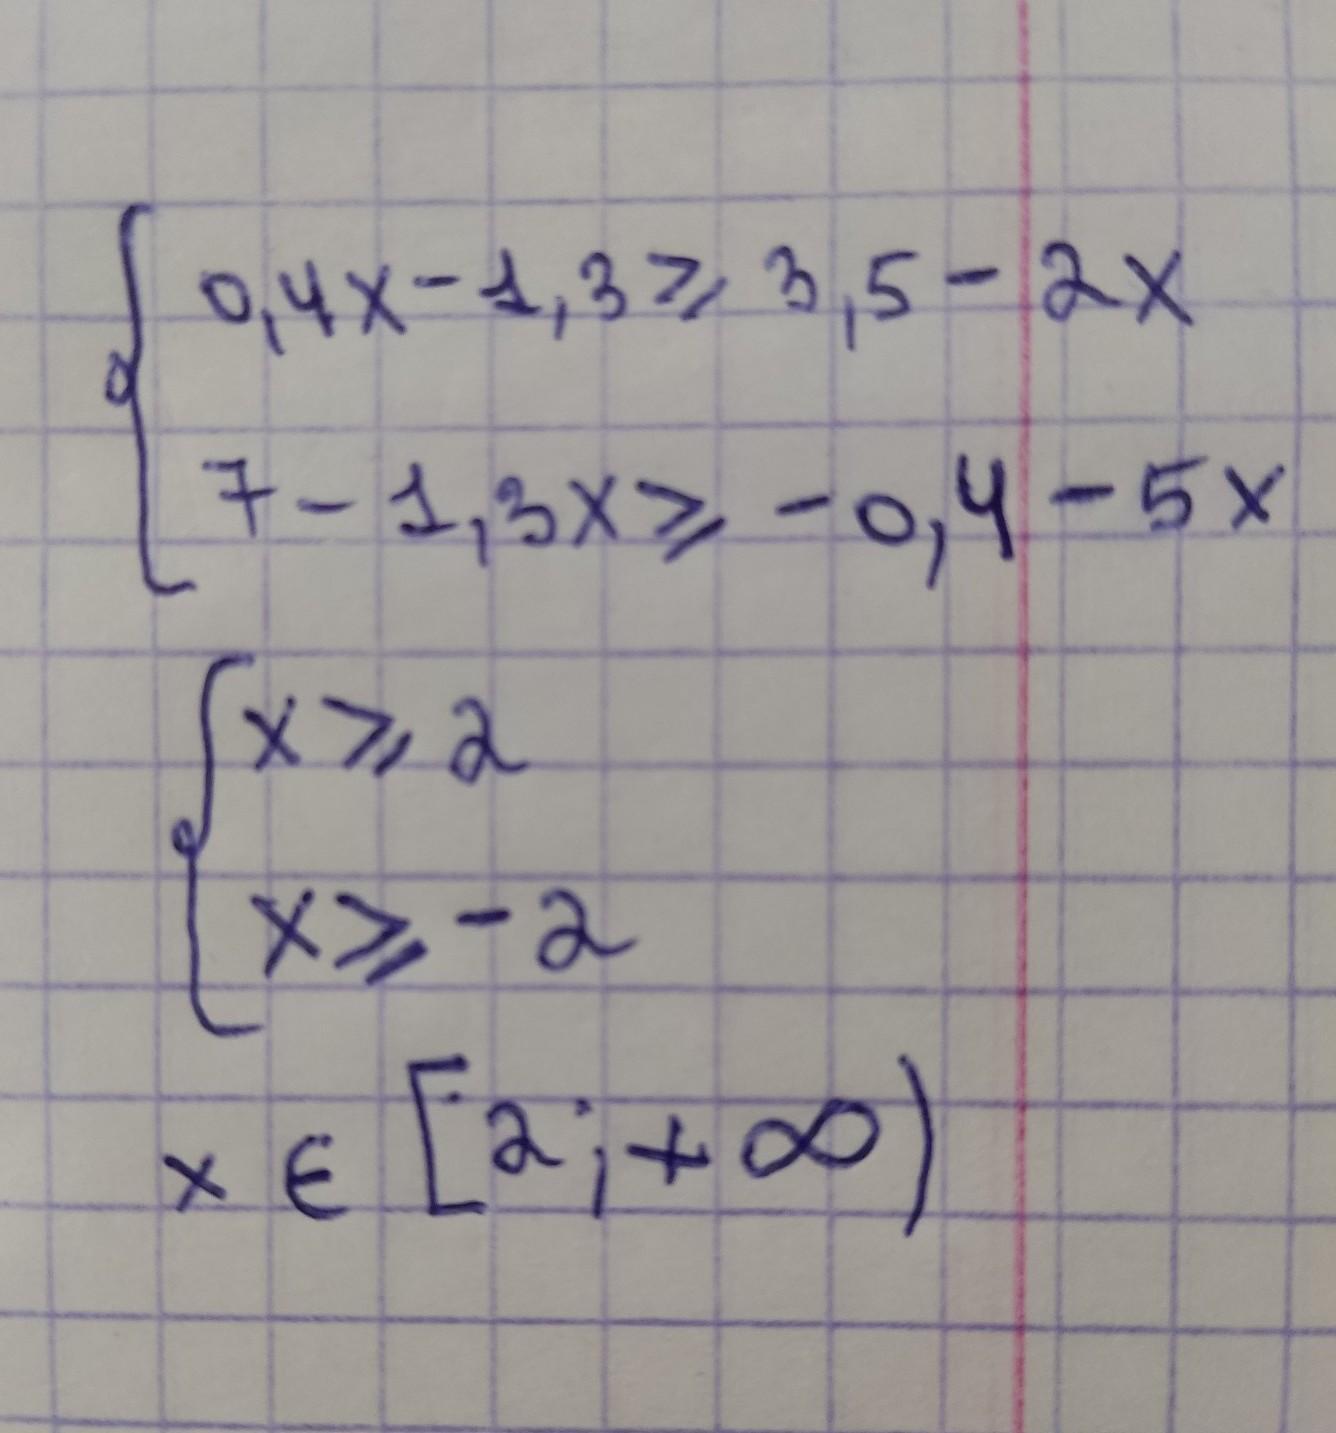 { 0,4x - 1,3 ⩾ 3,5 - 2x
7 - 1,3x ⩾ -0,4 - 5x
{ x ⩾ 2
x ⩾ -2
x ∈ [2; +∞)